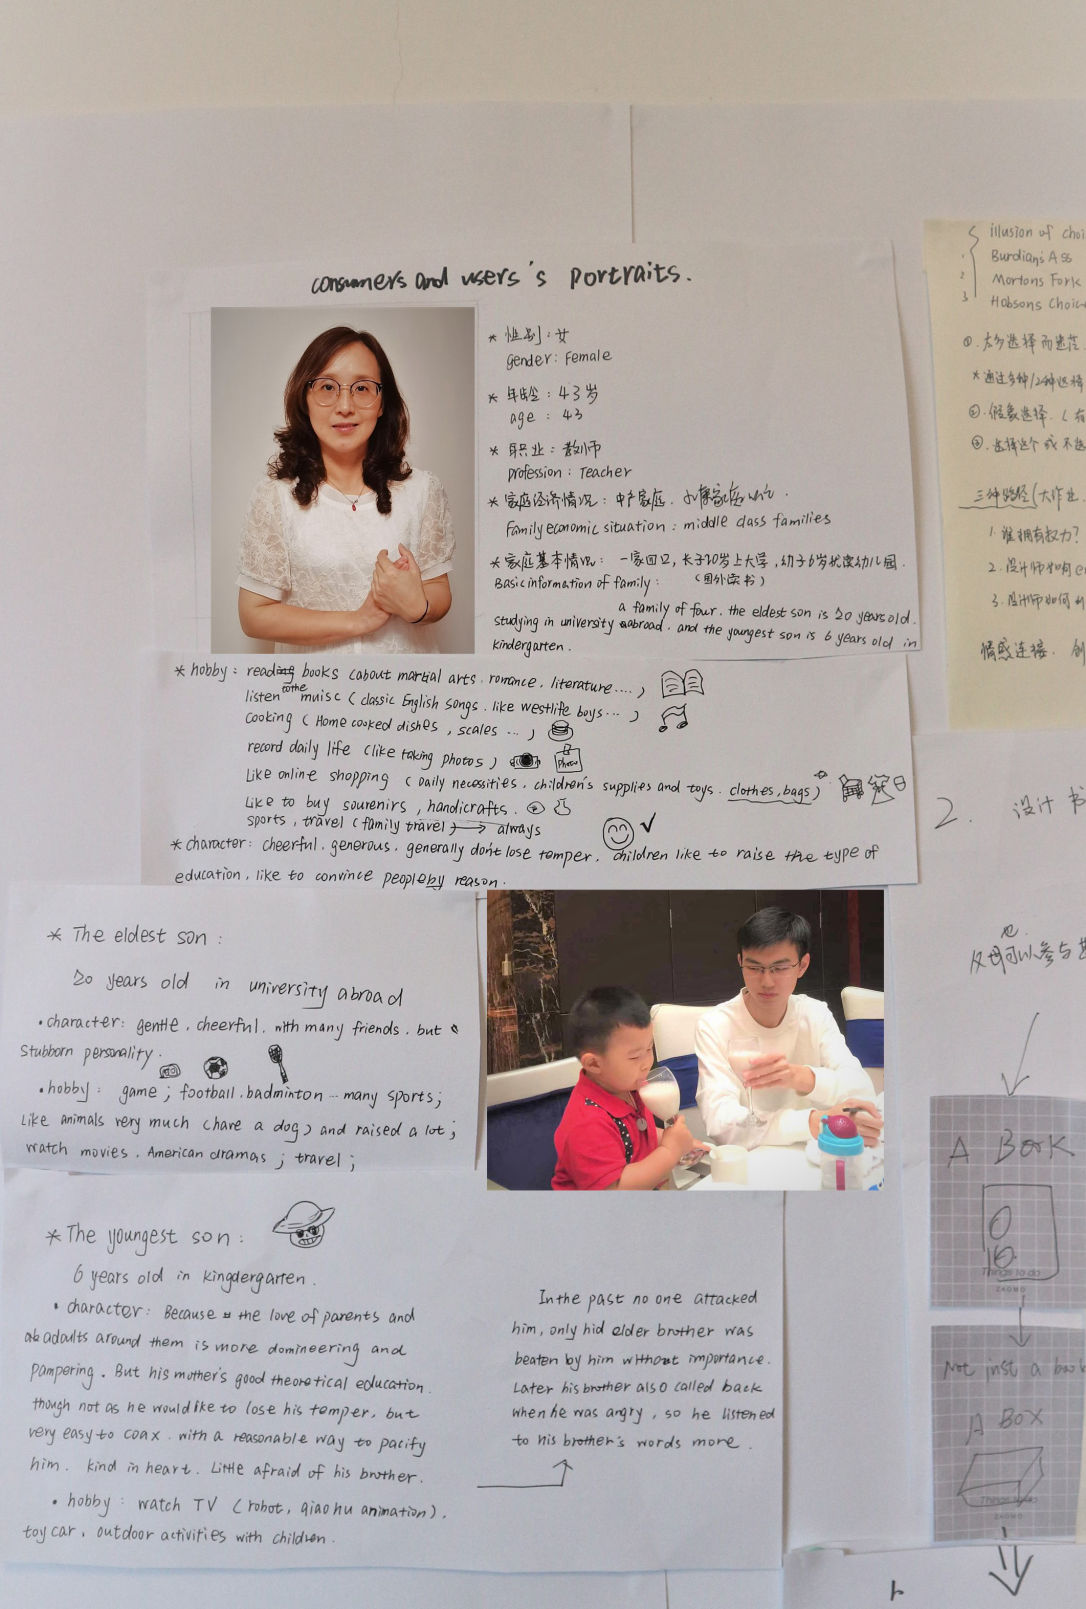 consumers and users's portraits.
* 性别：女
gender: Female
* 年龄：43岁
age: 43
* 职业：教师
profession: Teacher
* 家庭经济情况：中产家庭.小康家庭
Family economic situation: middle class families
* 家庭基本情况： 一家四口, 长子20岁上大学, 幼子6岁就读幼儿园.
(国外读书)
Basic information of family:
a family of four. the eldest son is 20 years old.
studying in university abroad. and the youngest son is 6 years old in
kindergarten.
* hobby: reading books (about martial arts. romance. literature....)
listen to the muisc (classic English songs. like westlife boys...)
cooking (Home cooked dishes, scales ...)
record daily life (like taking photos)
Photo
Like online shopping (Daily necessities. children's supplies and toys. clothes, bags)
Like to buy sourenirs, handicrafts.
sports, travel (family travel) → always
* character: cheerful. generous. generally don't lose temper. children like to raise the type of
education, like to convince people by reason.
* The eldest son:
20 years old in university abroad
• character: gentle. cheerful. with many friends. but a
stubborn personality.
• hobby: game; football. badminton ... many sports;
Like animals very much (have a dog) and raised a lot;
watch movies. American dramas; travel;
* The youngest son:
6 years old in kingdergarten.
• character: Because the love of parents and
adaults around them is more domineering and
pampering. But his mother's good theoretical education.
though not as he would like to lose his temper, but
very easy to coax. with a reasonable way to pacify
him. kind in heart. Little afraid of his brother.
• hobby: watch TV (robot, qiao hu animation).
toy car, outdoor activities with children.
In the past no one attacked
him, only hid elder brother was
beaten by him without importance.
Later his brother also called back
when he was angry, so he listened
to his brother's words more.
illusion of choi
1 Burdian's Ass
2 Mortons Fork
3 Hobsons Choic
①. 太多选择而迷茫.
*通过多种/2种选择
②. 假象选择.
③. 选择这个或不选
三种路径(大作业
1. 谁拥有权力?
2. 设计师如何
3. 设计师如何
情感连接. 创
2. 设计书
父母可以参与
也
A Book
Things to do
ZAOMO
Not just a book
A BOX
ZAOMO